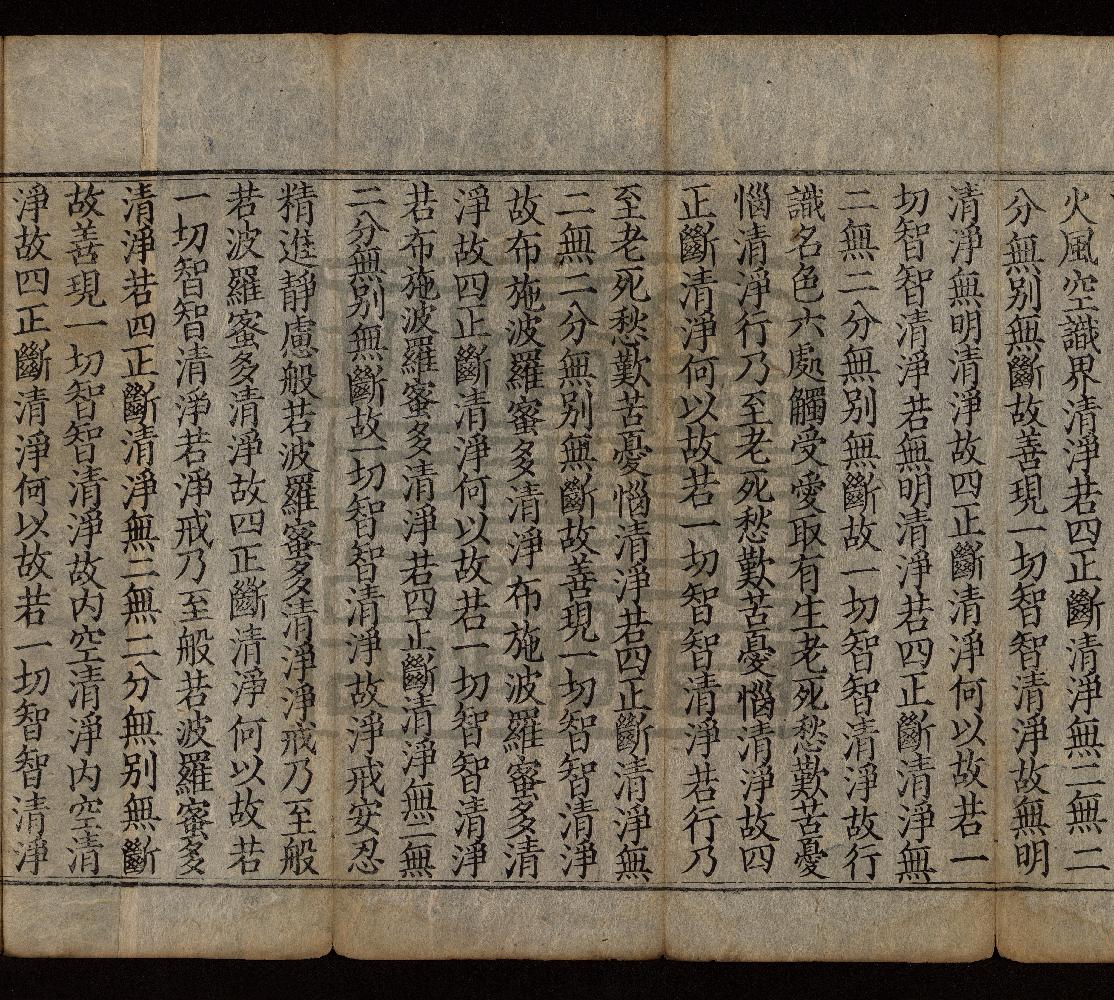 火風空識界清淨若四正斷清淨無二無二
分無別無斷故善現一切智智清淨故無明
清淨無明清淨故四正斷清淨何以故若一
切智智清淨若無明清淨若四正斷清淨無
二無二分無別無斷故一切智智清淨故行
識名色六處觸受愛取有生老死愁歎苦憂
惱清淨行乃至老死愁歎苦憂惱清淨故四
正斷清淨何以故若一切智智清淨若行乃
至老死愁歎苦憂惱清淨若四正斷清淨無
二無二分無別無斷故善現一切智智清淨
故布施波羅蜜多清淨布施波羅蜜多清
淨故四正斷清淨何以故若一切智智清淨
若布施波羅蜜多清淨若四正斷清淨無二無
二分無別無斷故一切智智清淨故淨戒安忍
精進靜慮般若波羅蜜多清淨淨戒乃至般
若波羅蜜多清淨故四正斷清淨何以故若
一切智智清淨若淨戒乃至般若波羅蜜多
清淨若四正斷清淨無二無二分無別無斷
故善現一切智智清淨故內空清淨內空清
淨故四正斷清淨何以故若一切智智清淨